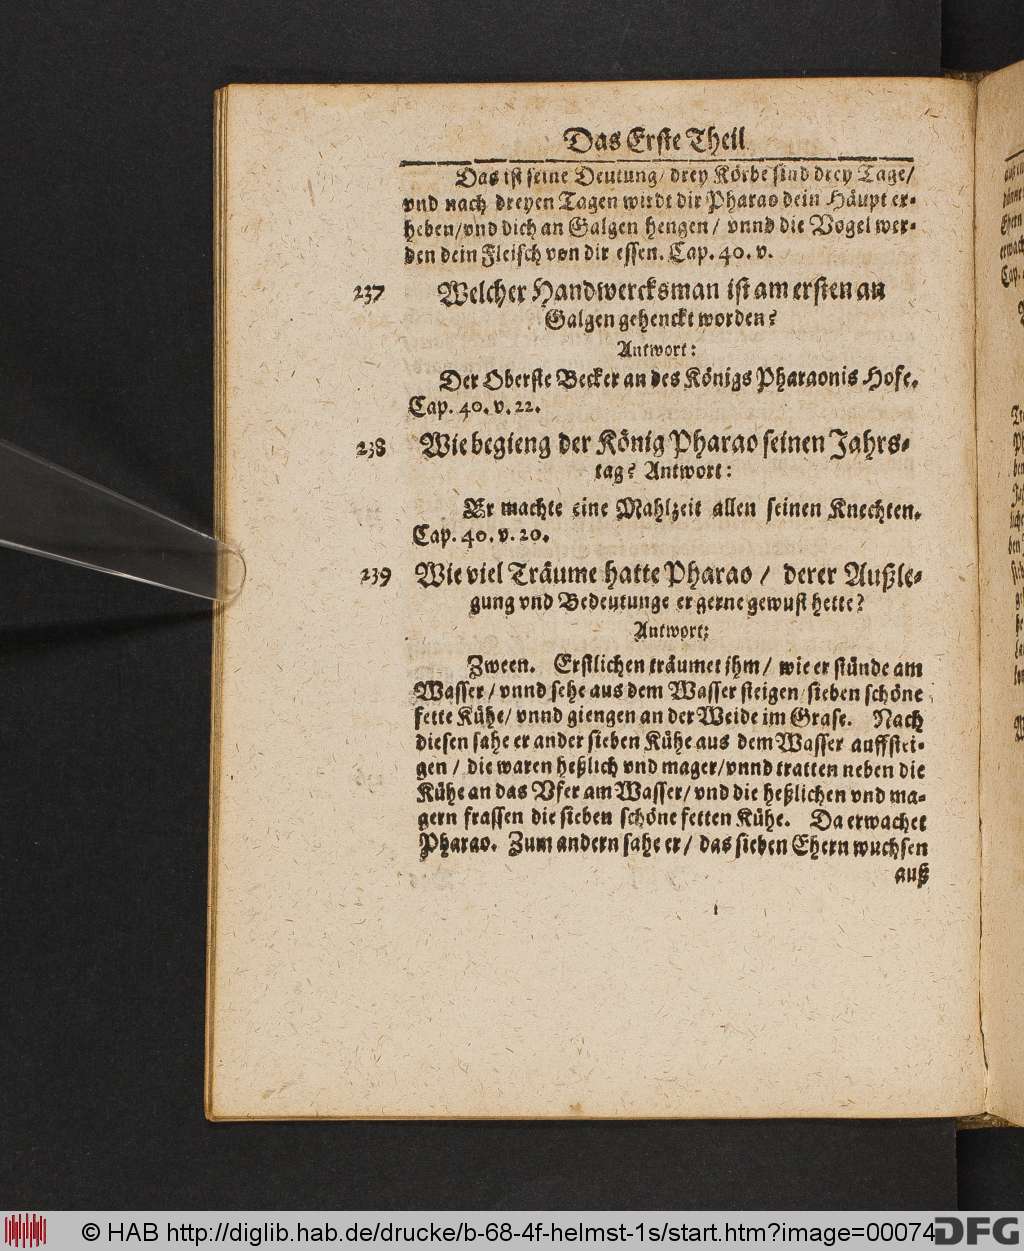 Das Erste Theil
Das ist seine Deutung/ drey Körbe sind drey Tage/
vnd nach dreyen Tagen wirdt dir Pharao dein Häupt er-
heben/vnd dich an Galgen hengen/ vnnd die Vogel wer-
den dein Fleisch von dir essen. Cap. 40. v.
237 Welcher Handwercksman ist am ersten an
Galgen gehenckt worden?
Antwort:
Der Oberste Becker an des Königs Pharaonis Hofe.
Cap. 40. v. 22.
238 Wie begieng der König Pharao seinen Jahrs-
tag? Antwort:
Er machte eine Mahlzeit allen seinen Knechten.
Cap. 40. v. 20.
239 Wie viel Träume hatte Pharao / derer Außle-
gung vnd Bedeutunge er gerne gewust hette?
Antwort:
Zween. Erstlichen träumet ihm/ wie er stünde am
Wasser/ vnnd sehe aus dem Wasser steigen/ sieben schöne
fette Kühe/ vnnd giengen an der Weide im Grase. Nach
diesen sahe er ander sieben Kühe aus dem Wasser auffstei-
gen / die waren heßlich vnd mager/vnnd tratten neben die
Kühe an das Vfer am Wasser/ vnd die heßlichen vnd ma-
gern frassen die sieben schöne fetten Kühe. Da erwachet
Pharao. Zum andern sahe er/ das sieben Ehern wuchsen
auß
© HAB http://diglib.hab.de/drucke/b-68-4f-helmst-1s/start.htm?image=00074
DFG